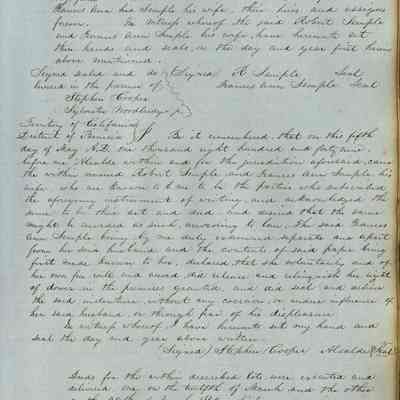 Frances Ann his Semple his wife, their heirs, and assigns
forever. In witness whereof the said Robert Semple
and Frances Ann Semple his wife, have hereunto set
their hands and seals, on the day and year first herein
above mentioned.
Signed sealed and de (Signed) R. Semple Seal
livered in the presence of Frances Ann Semple Seal
Stephen Cooper
Sylvester Woodbridge jr
Territory of California
District of Benicia Be it remembered, that on this fifth
day of May A.D. one thousand eight hundred and forty nine,
before me Alcalde within and for the jurisdiction aforesaid, came
the within named Robert Semple, and Frances Ann Semple, his
wife, who are known to me to be the parties who subscribed
the foregoing instrument of writing, and acknowledged the
same to be their act and deed, and desired that the same
might be recorded as such, according to law. The said Frances
Ann Semple being by me duly examined separate and apart
from her said husband, and the contents of said paper being
first made known to her, declared that she voluntarily and of
her own free will and accord, did release and relinquish her right
of dower in the premises granted, and did seal and deliver
the said indenture without any coercion, or undue influence of
her said husband, or through fear of his displeasure.
In witness whereof I have hereunto set my hand and
seal the day and year above written.
(Signed) Stephen Cooper Alcalde Seal
Deeds for the within described lots, were executed and
delivered, one on the twelfth of March and the other